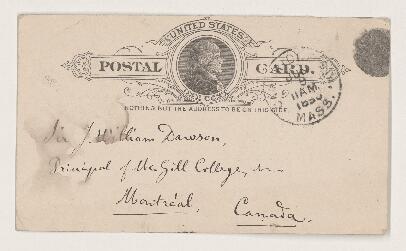 UNITED STATES
POSTAL CARD.
ONE CENT
NOTHING BUT THE ADDRESS TO BE ON THIS SIDE.
11 AM
MASS.
Sir J. William Dawson,
Principal of McGill College,
Montréal,
Canada.